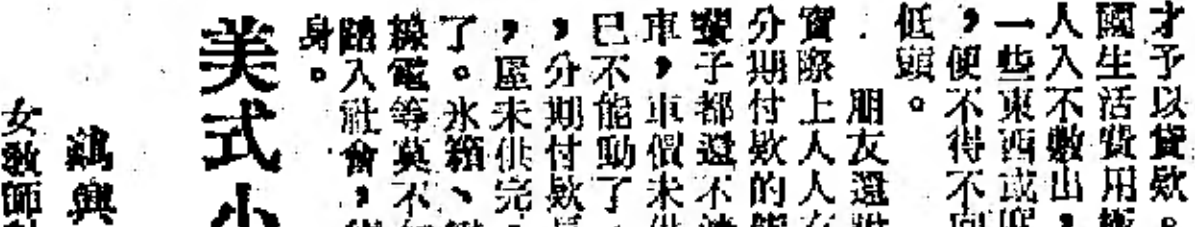 才予以貸款。
國生活費用
人入不敷出，
一些東西或
，便不得不向
低頭。
朋友還
實際上人人
分期付款的
輩子都還不
車，車價未供
已不能動了，
，分期付款
，屋未供完，
了。氷箱、
線電等莫不
踏入社會，
身。
美式小
興
女教師